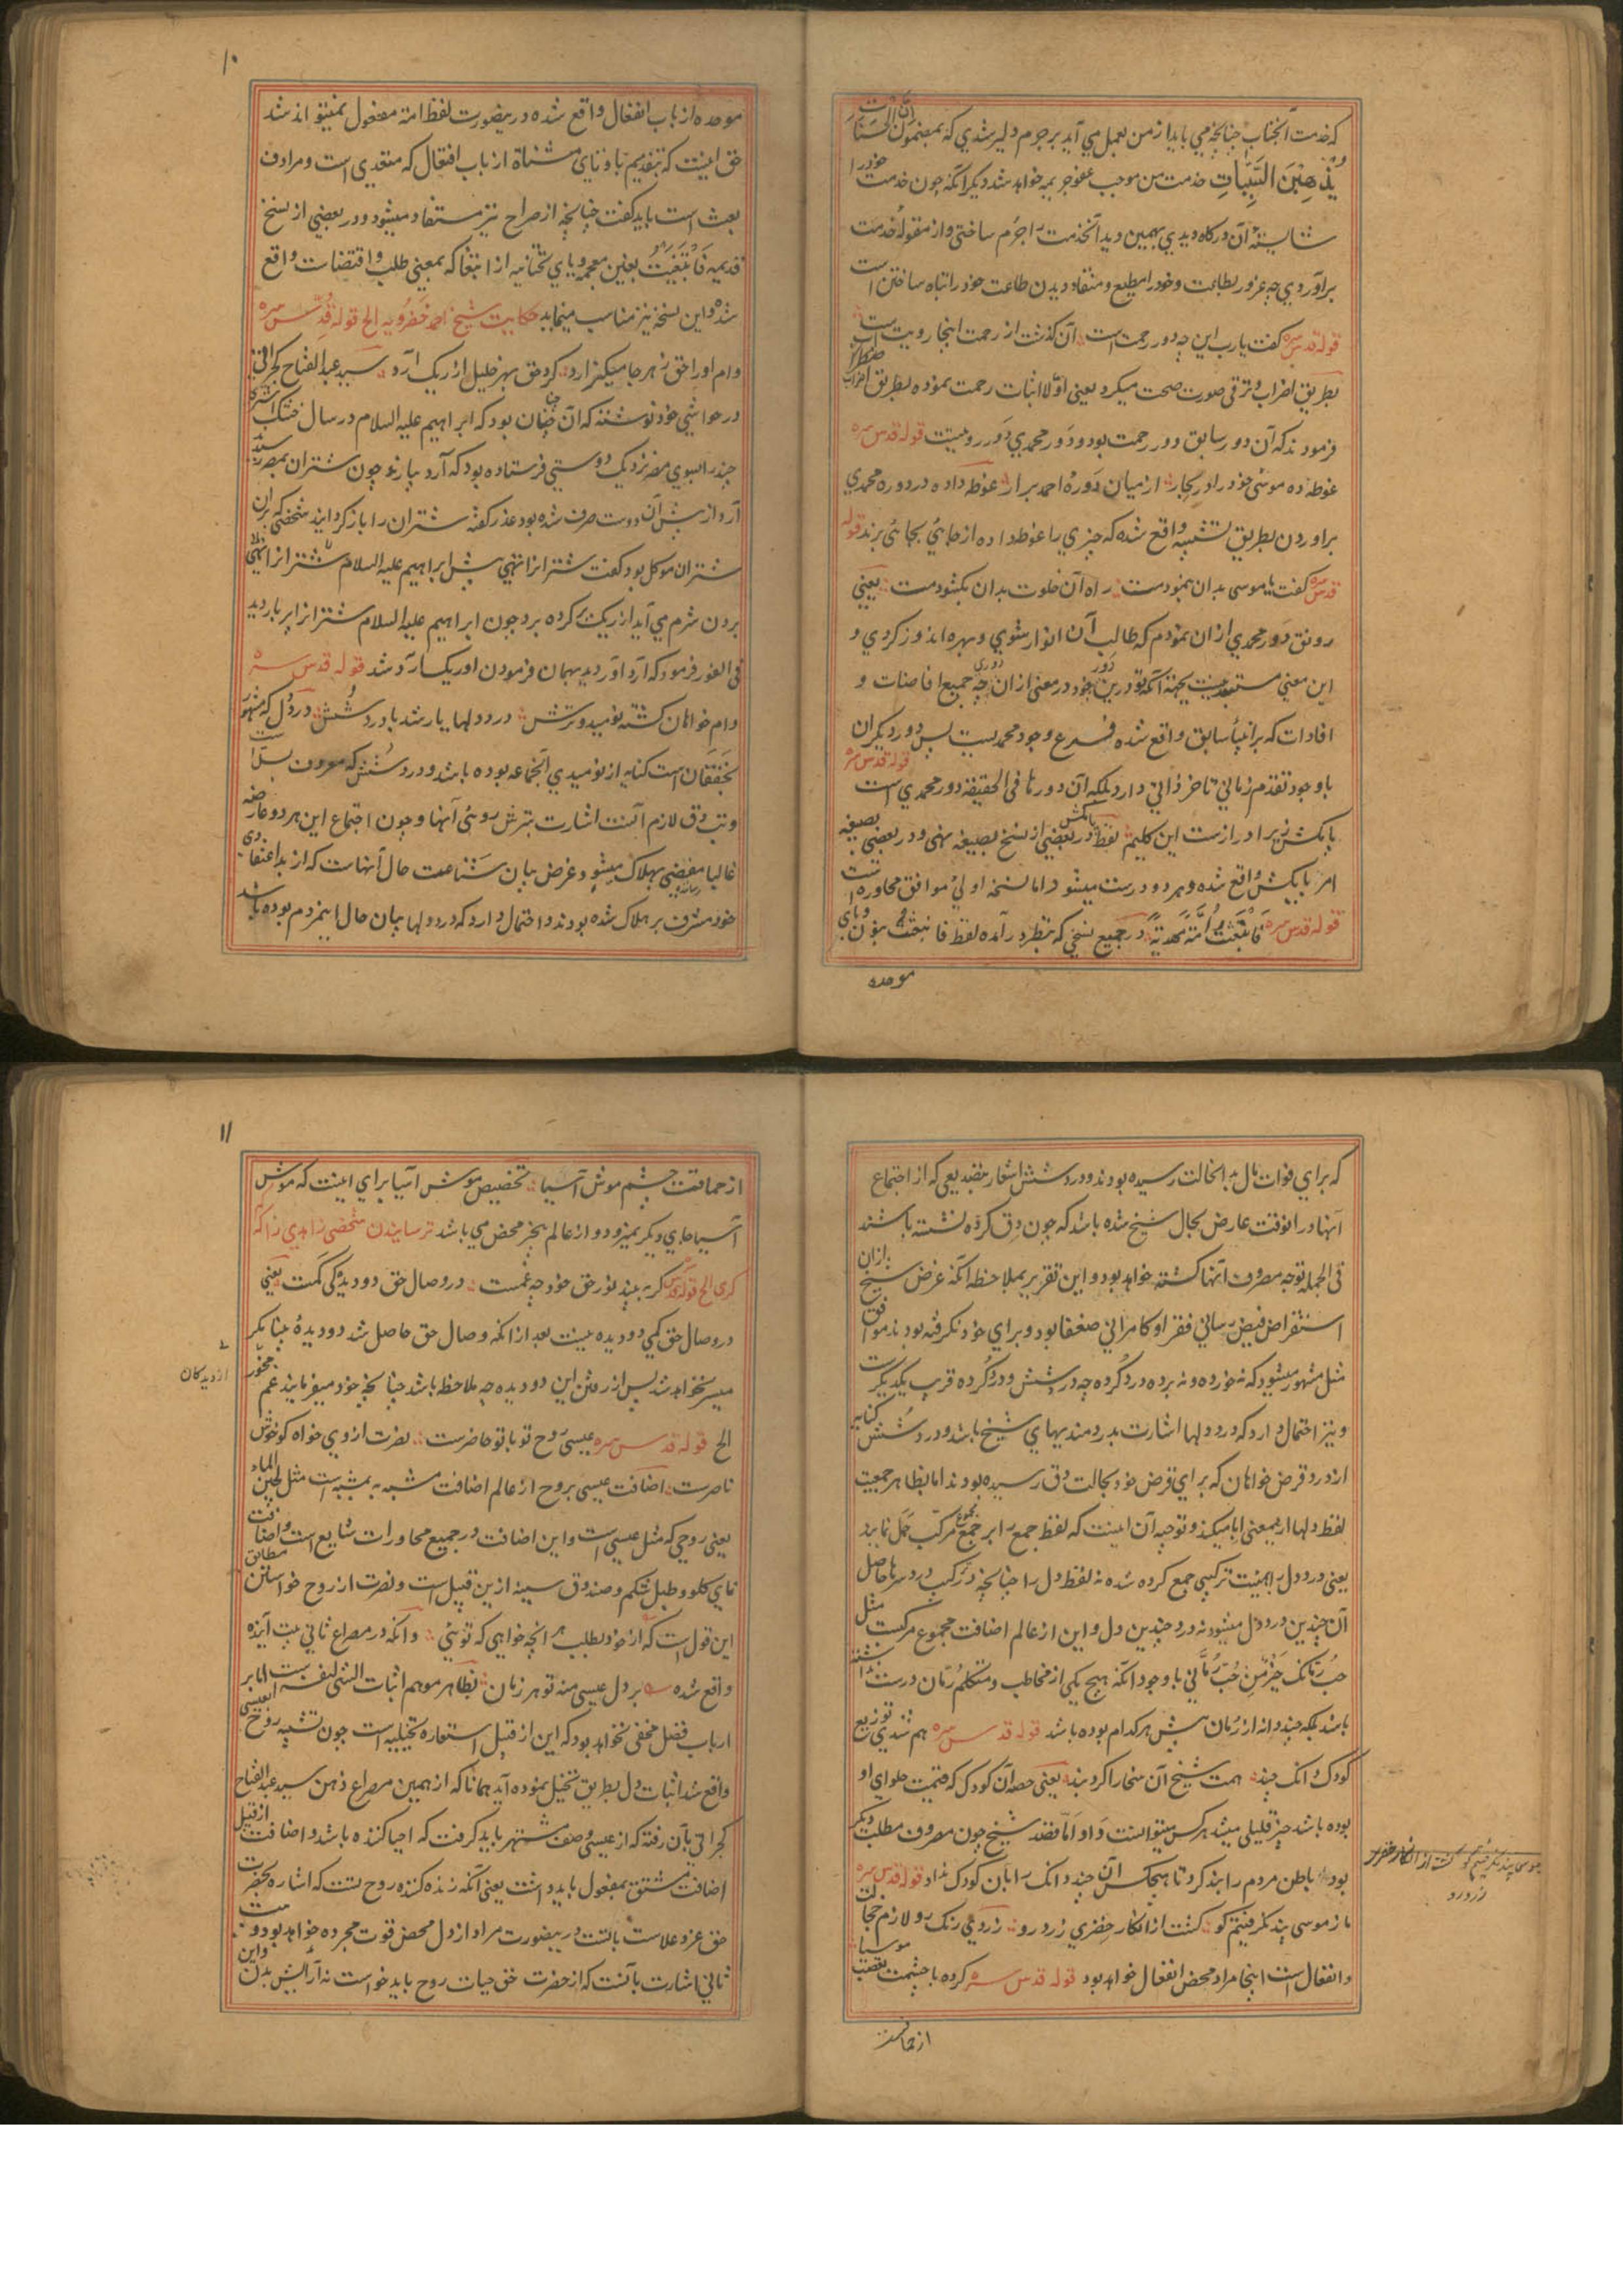 که خدمت آنجناب چنانچه می باید از من بعمل می آید بر جرم دلیر شدی که بمضمون ان الحسنات
یذهبن السیئات خدمت من موجب عفو جریمه خواهد شد دیگر آنکه چون خدمت خود را
شایستهٔ آن درگاه دیدی بهمین دید آنخدمت را جرم ساختی و از مقولهٔ خدمت
برآوردی چه غرور بطاعت و خود را مطیع و منقاد دیدن طاعت خود را تباه ساختن است
قوله قدس سره گفت یا رب این چه دور رحمت است آن گذشت از رحمت اینجا رویت است
بطریق اضراب و ترقی صورت صحت میگیرد یعنی اولا اثبات رحمت نموده بطریق اضراب
فرمودند که آن دور سابق دور رحمت بود و دور محمدی دور رویت قوله قدس سره
غوطه ده موسی خود را در بحار از میان دورهٔ احمد برآر غوطه داده در دوره محمدی
براوردن بطریق تشبیه واقع شده که چیزی را غوطه داده از جائی بجائی برند قوله
قدس سره گفت یا موسی بدان بنمودمت راه آن خلوت بدان بگشودمت یعنی
رونق دور محمدی ازان نمودم که طالب آن انوار شوی و بهره اندوز گردی و
این معنی مستبعد نیست بجهة آنکه تو درین دور خود در معنی ازان دوری چه جمیع افاضات و
افادات که بر انبیأ سابق واقع شده فرع وجود محمدیست پس دور دیگران
با وجود تقدم زمانی تاخر ذاتی دارد بلکه آن دورها فی الحقیقة دور محمدی است قوله قدس سره
پا بکش زیرا درازست این گلیم لفظ پا بکش در بعضی از نسخ بصیغه نهی و در بعضی بصیغه
امر پا بکش واقع شده و هر دو درست میشود اما نسخه اولی موافق محاوره است
قوله قدس سره فانبعثت امة مهدیة در جمیع نسخی که بنظر در آمده لفظ فانبعثت بنون و بای
موحده
۱۰
موحده از باب انفعال واقع شده درینصورت لفظ امة مفعول نمیتواند شد
حق اینست که بتقدیم با و تای مثناة از باب افتعال که متعدی است و مرادف
بعث است باید گفت چنانچه از صراح نیز مستفاد میشود و در بعضی از نسخ
قدیمه فابتغیت بغین معجمه و یای تحتانیه از ابتغا که بمعنی طلب و اقتضاست واقع
شده و این نسخه نیز مناسب مینماید حکایت شیخ احمد خضرویه الخ قوله قدس سره
وام او را حق ز هر جا میگزارد کرد حق بهر خلیل از ریگ آرد سید عبدالفتاح گجراتی
در حواشی خود نوشته که آن چنان بود که ابراهیم علیه السلام در سال خشک شتری
چند را بسوی مصر نزدیک دوستی فرستاده بود که آرد بیارند چون شتران بمصر رسیدند
آرد از پیش آن دوست صرف شده بود عذر گفته شتران را باز گردانید شخصی که بران
شتران موکل بود گفت شترانرا تهی پیش ابراهیم علیه السلام
بردن شرم می آید از ریگ پر کرده برد چون ابراهیم علیه السلام شترانرا پر بار دید
فی الفور فرمود که آرد آوردید بهمان فرمودن او ریگ آرد شد قوله قدس سره
وام خواهان گشته نومید و ترش درد دلها یار شد با درد شش درد دل که مشهور
بخفقان است کنایه از نومیدی آنجماعه بوده باشد و درد شش که معروف بسل است
و تب دق لازم آنست اشارت بترش روئی آنها و چون اجتماع این هر دو عارضه
غالبا مفضی بهلاک میشود غرض بیان شناعت حال آنهاست که از بداعتقادی
خود مشرف بر هلاک شده بودند و احتمال دارد که درد دلها بیان حال اینمردم بوده باشد
که برای فوات مال به انحالت رسیده بودند و درد شش اشعار بتصدیعی که از اجتماع
آنها در انوقت عارض بحال شیخ شده باشد که چون دق کرده نشسته باشند
فی الجمله توجه مصروف آنها گشته خواهد بود و این تقریر بملاحظه آنکه غرض شیخ ازان
استقراض فیض رسانی فقرا و کامرانی ضعفا بود و برای خود نگرفته بودند موافق
مثل مشهور میشود که نه خورده و نه برده درد گرده چه درد شش و درد گرده قریب یکدیگرست
و نیز احتمال دارد که درد دلها اشارت بدردمندیهای شیخ باشد و درد شش کنایه
از درد قرض خواهان که برای قرض خود بحالت دق رسیده بودند اما بظاهر جمعیت
لفظ دلها ازینمعنی ابا میکند و توجیه آن اینست که لفظ جمع را بر جمع مجموع مرکب حمل نمایند
یعنی درد دل را بهیئت ترکیبی جمع کرده شده نه لفظ دل را چنانچه در ترکیب درد سرها حاصل
آن چندین درد دل میشود نه درد چندین دل و این از عالم اضافت مجموع مرکبست مثل
حب رمانک خیر من حب رمانی با وجود آنکه هیچ یکی از مخاطب و متکلم رمان درست نداشته
باشد بلکه چند دانه از رمان پیش هر کدام بوده باشد قوله قدس سره هم شدی توزیع
کودک دانگ چند همت شیخ آن سخا را کرد بند یعنی حصه آن کودک که قیمت حلوای او
بوده باشد چیز قلیلی میشد هر کس میتوانست داد اما قصد شیخ چون مصروف مطلب دیگر
بود باطن مردم را بند کرد تا هیچکس آن چند دانگ را بآن کودک نداد قوله قدس سره
ما ز موسی پند نگرفتیم کو گشت از انکار خضری زرد رو زردی رنگ رو لازم خجالت
و انفعال است اینجا مراد محض انفعال خواهد بود قوله قدس سره کرده با چشمت تعصب موسیا
از حماقت
موسی پند نگرفتیم کو گشت از انکار خضری
زردرو
۱۱
از حماقت چشم موش آسیا تخصیص موش آسیا برای اینست که موش
آسیا جای دیگر نمیرود و از عالم بجز محض می باشد ترسانیدن شخصی زاهدی را که
گری الخ قوله قدس سره گر ببیند نور حق خود چه غمست در وصال حق دو دیده کی کمست یعنی
در وصال حق کمی دو دیده نیست بعد از انکه وصال حق حاصل شد دو دیدهٔ بینا مگر
میسر نخواهد شد پس از رفتن این دو دیده چه ملاحظه باشد چنانچه خود میفرمایند غم مخور
از دیدگان
الخ قوله قدس سره عیسی روح تو با تو حاضرست نصرت از وی خواه کو خوش
ناصرست اضافت عیسی بروح از عالم اضافت مشبه به بمشبه است مثل لجین الماء
یعنی روحی که مثل عیسی است و این اضافت در جمیع محاورات شایع است و اضافت
نای گلو و طبل شکم و صندوق سینه ازین قبیل است و نصرت از روح خواستن مطابق
این قول است که از خود بطلب هر انچه خواهی که توئی و آنکه در مصراع ثانی بیت آینده
واقع شده بر دل عیسی منه تو هر زمان بظاهر موهم اثبات الشی لنفسه است اما بر
ارباب فضل مخفی نخواهد بود که این از قبیل استعاره تخیلیه است چون تشبیه روح بعیسی
واقع شد اثبات دل بطریق تخییل نموده آید همانا که از همین مصراع ذهن سید عبدالفتاح
گجراتی بآن رفته که از عیسی وصف مشتهر باید گرفت که احیا کننده باشد و اضافت از قبیل
اضافت مشتق بمفعول باید دانست یعنی آنکه زنده کننده روح تست که اشاره بحضرت
حق عز و علاست با تست درینصورت مراد از دل محض قوت مجرده خواهد بود و بیت
ثانی اشارت بآنست که از حضرت حق حیات روح باید خواست نه آرایش بدن و این